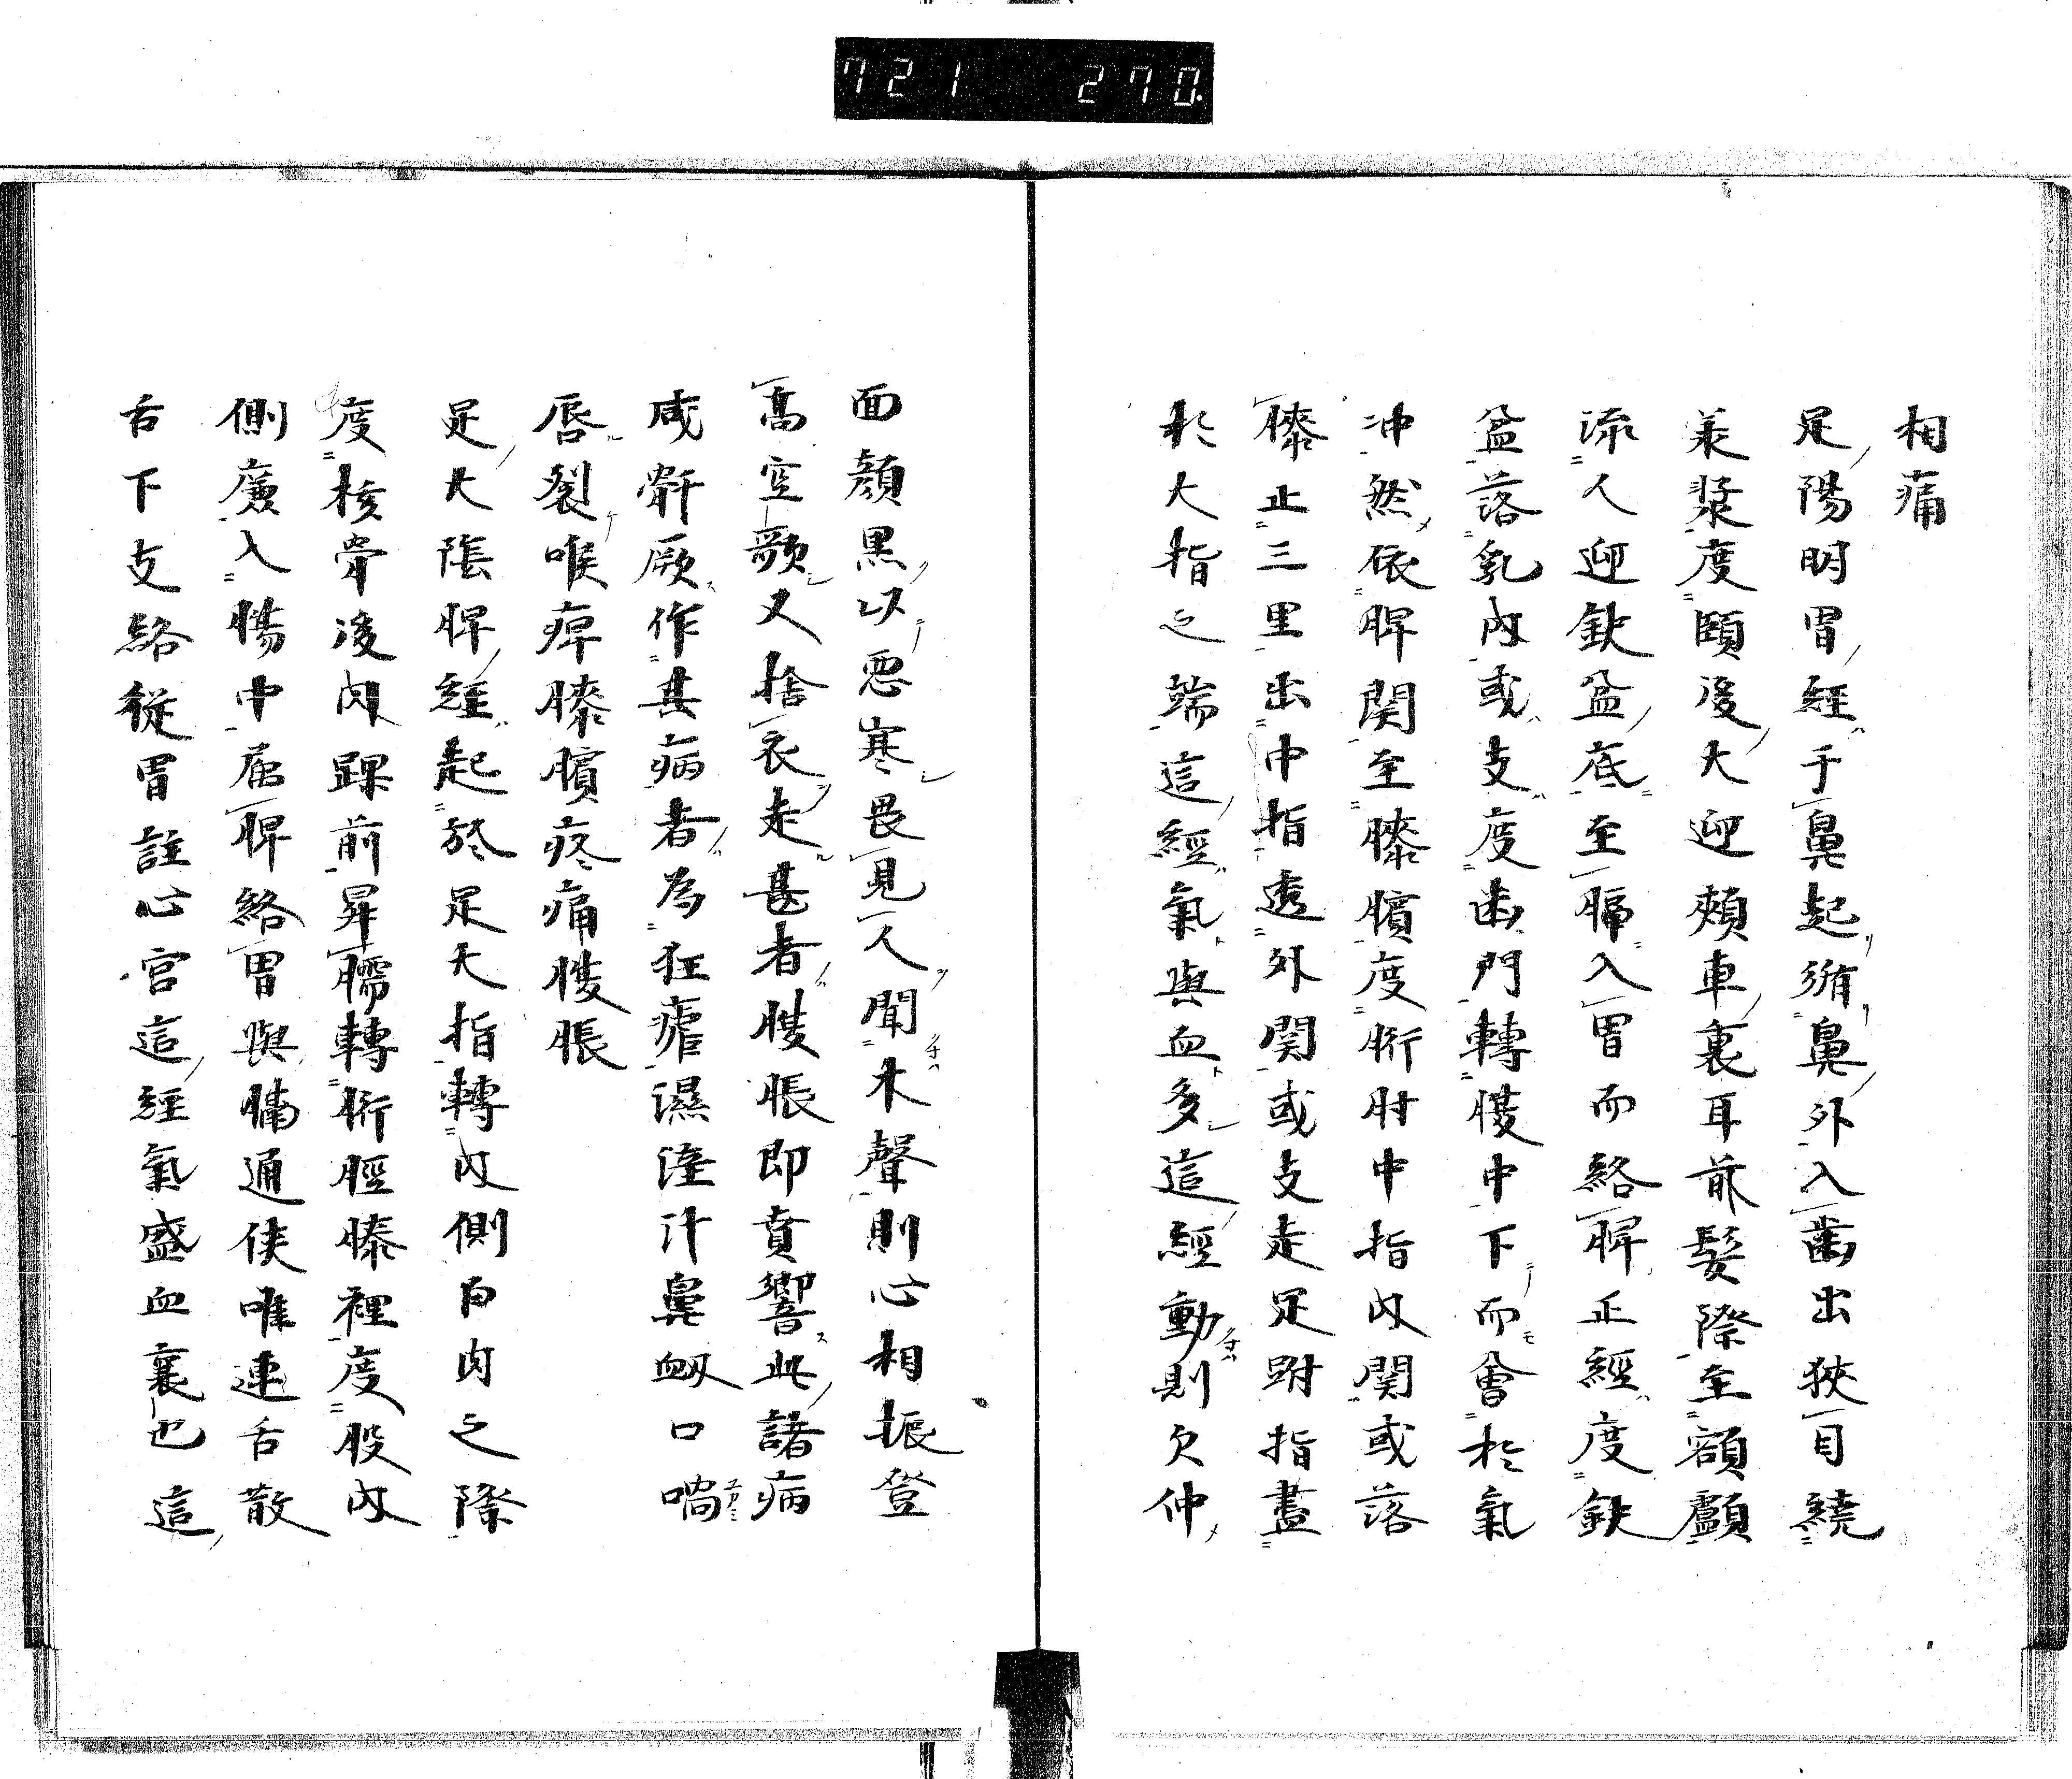 721 270.
相痛
足陽明胃経于鼻起循鼻外入歯出狭目繞
兼漿度頤後大迎頰車裏耳前髪際至額顱
流人迎欽盆底至膈入胃而絡脾正經度欽
盆落乳内或支度歯門轉腹中下而會於氣
冲然依脾関至膝臏度䯒肘中指内関或落
膝止三里出中指透外関或支走足跗指盡
於大指之端這經氣與血多這經動則欠仲
面顔黒以悪寒畏見人聞木聲則心相振登
髙空歌又捨衣走甚者腹脹即賁響此諸病
咸骭厥作其病者為狂瘧濕淫汁鼻衂口喎
唇裂喉痺膝臏疼痛腹脹
足大陰脾経起於足大指轉内側白肉之際
度核骨後内踝前昇臑轉䯒脛膝裡度股内
側廉入腸中屈脾絡胃與膈通侠喉連舌散
舌下支絡從胃註心宮這経氣盛血衰也這